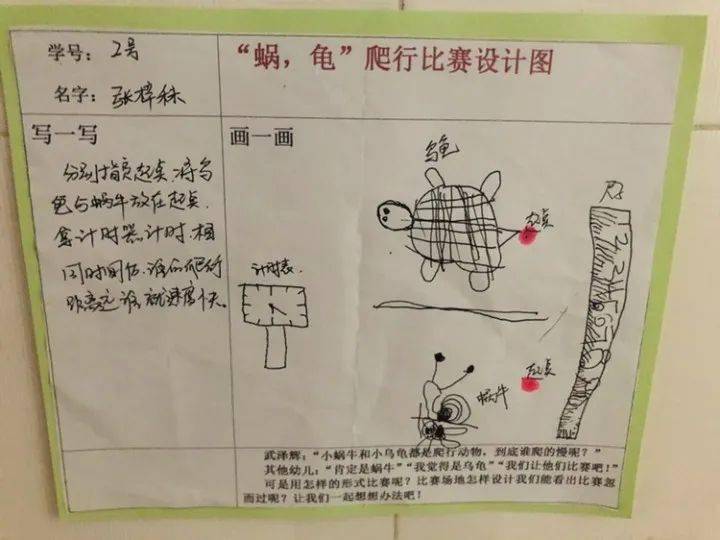 学号： 2号
“蜗，龟”爬行比赛设计图
名字： 张梓秋
写一写
画一画
分别指定起点.将乌
龟与蜗牛放在起点.
拿计时器计时.相
同时间后.谁的爬行
距离远谁就速度快。
乌龟
起点
尺子
计时表
起点
蜗牛
武泽辉：“小蜗牛和小乌龟都是爬行动物，到底谁爬的慢呢？”
其他幼儿：“肯定是蜗牛”“我觉得是乌龟”“我们让他们比赛吧！”
可是用怎样的形式比赛呢？比赛场地怎样设计我们能看出比赛忽
而过呢？让我们一起想想办法吧！